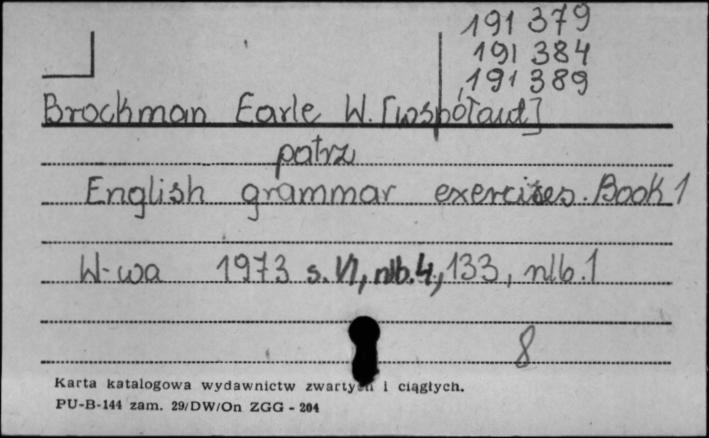 191 379
191 384
191 389
Brockman Earle W. [współaut]
patrz
English grammar exercises. Book 1
W-wa 1973 s. VI, nlb. 4, 133, nlb. 1
8
Karta katalogowa wydawnictw zwartych i ciągłych.
PU-B-144 zam. 29/DW/On ZGG - 204